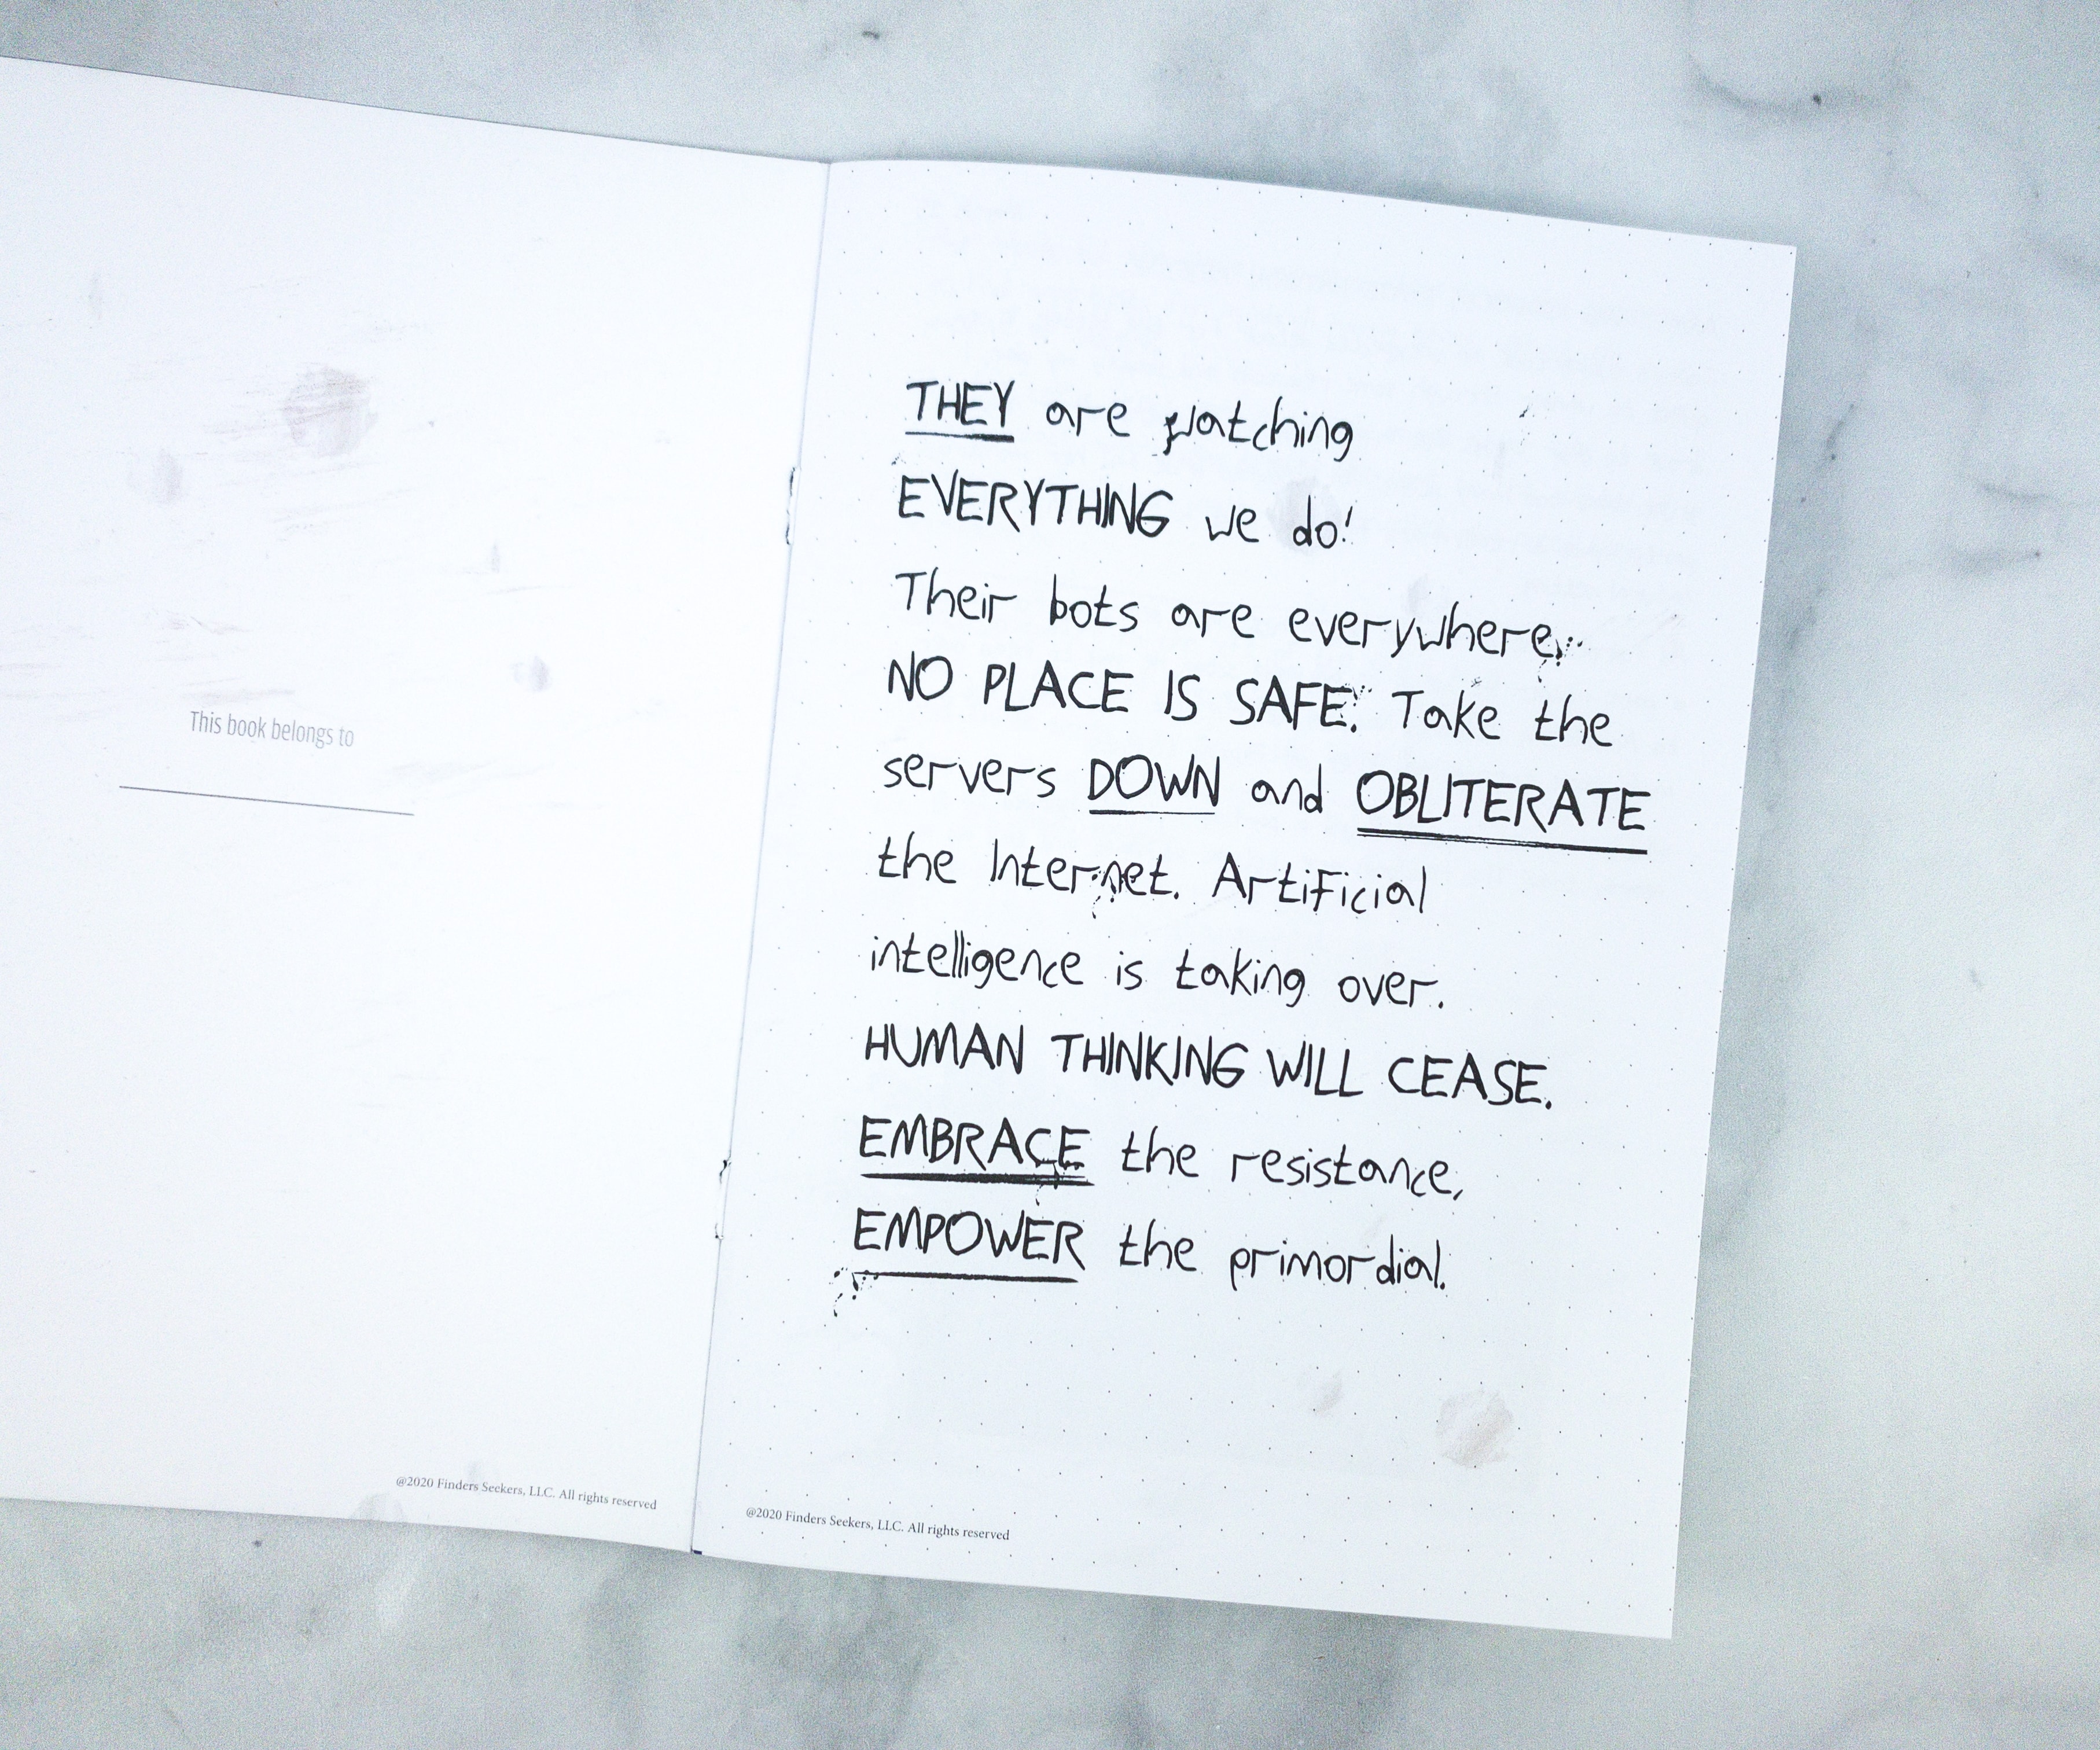 This book belongs to
@2020 Finders Seekers, LLC. All rights reserved
THEY are watching
EVERYTHING we do!
Their bots are everywhere.
NO PLACE IS SAFE. Take the
servers DOWN and OBLITERATE
the Internet. Artificial
intelligence is taking over.
HUMAN THINKING WILL CEASE.
EMBRACE the resistance,
EMPOWER the primordial.
@2020 Finders Seekers, LLC. All rights reserved